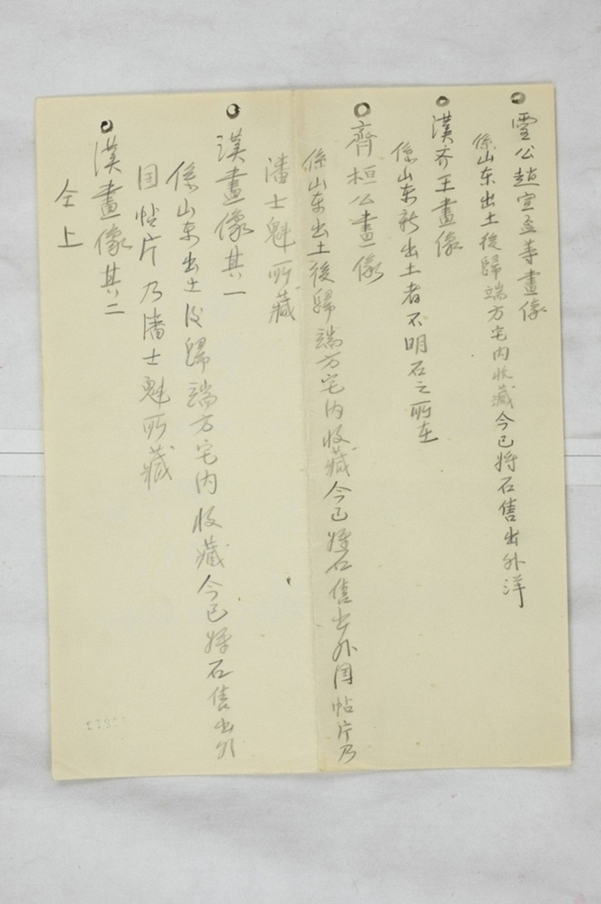 ○靈公趙宣孟等畫像
係山东出土後歸端方宅內收藏今已将石售出外洋
○漢齐王畫像
係山东新出土者不明石之所在
○齊桓公畫像
係山东出土後歸端方宅內收藏今已将石售出外国帖片乃
潘士魁所藏
○漢畫像其一
係山东出土後歸端方宅內收藏今已将石售出外
国帖片乃潘士魁所藏
○漢畫像其二
仝上